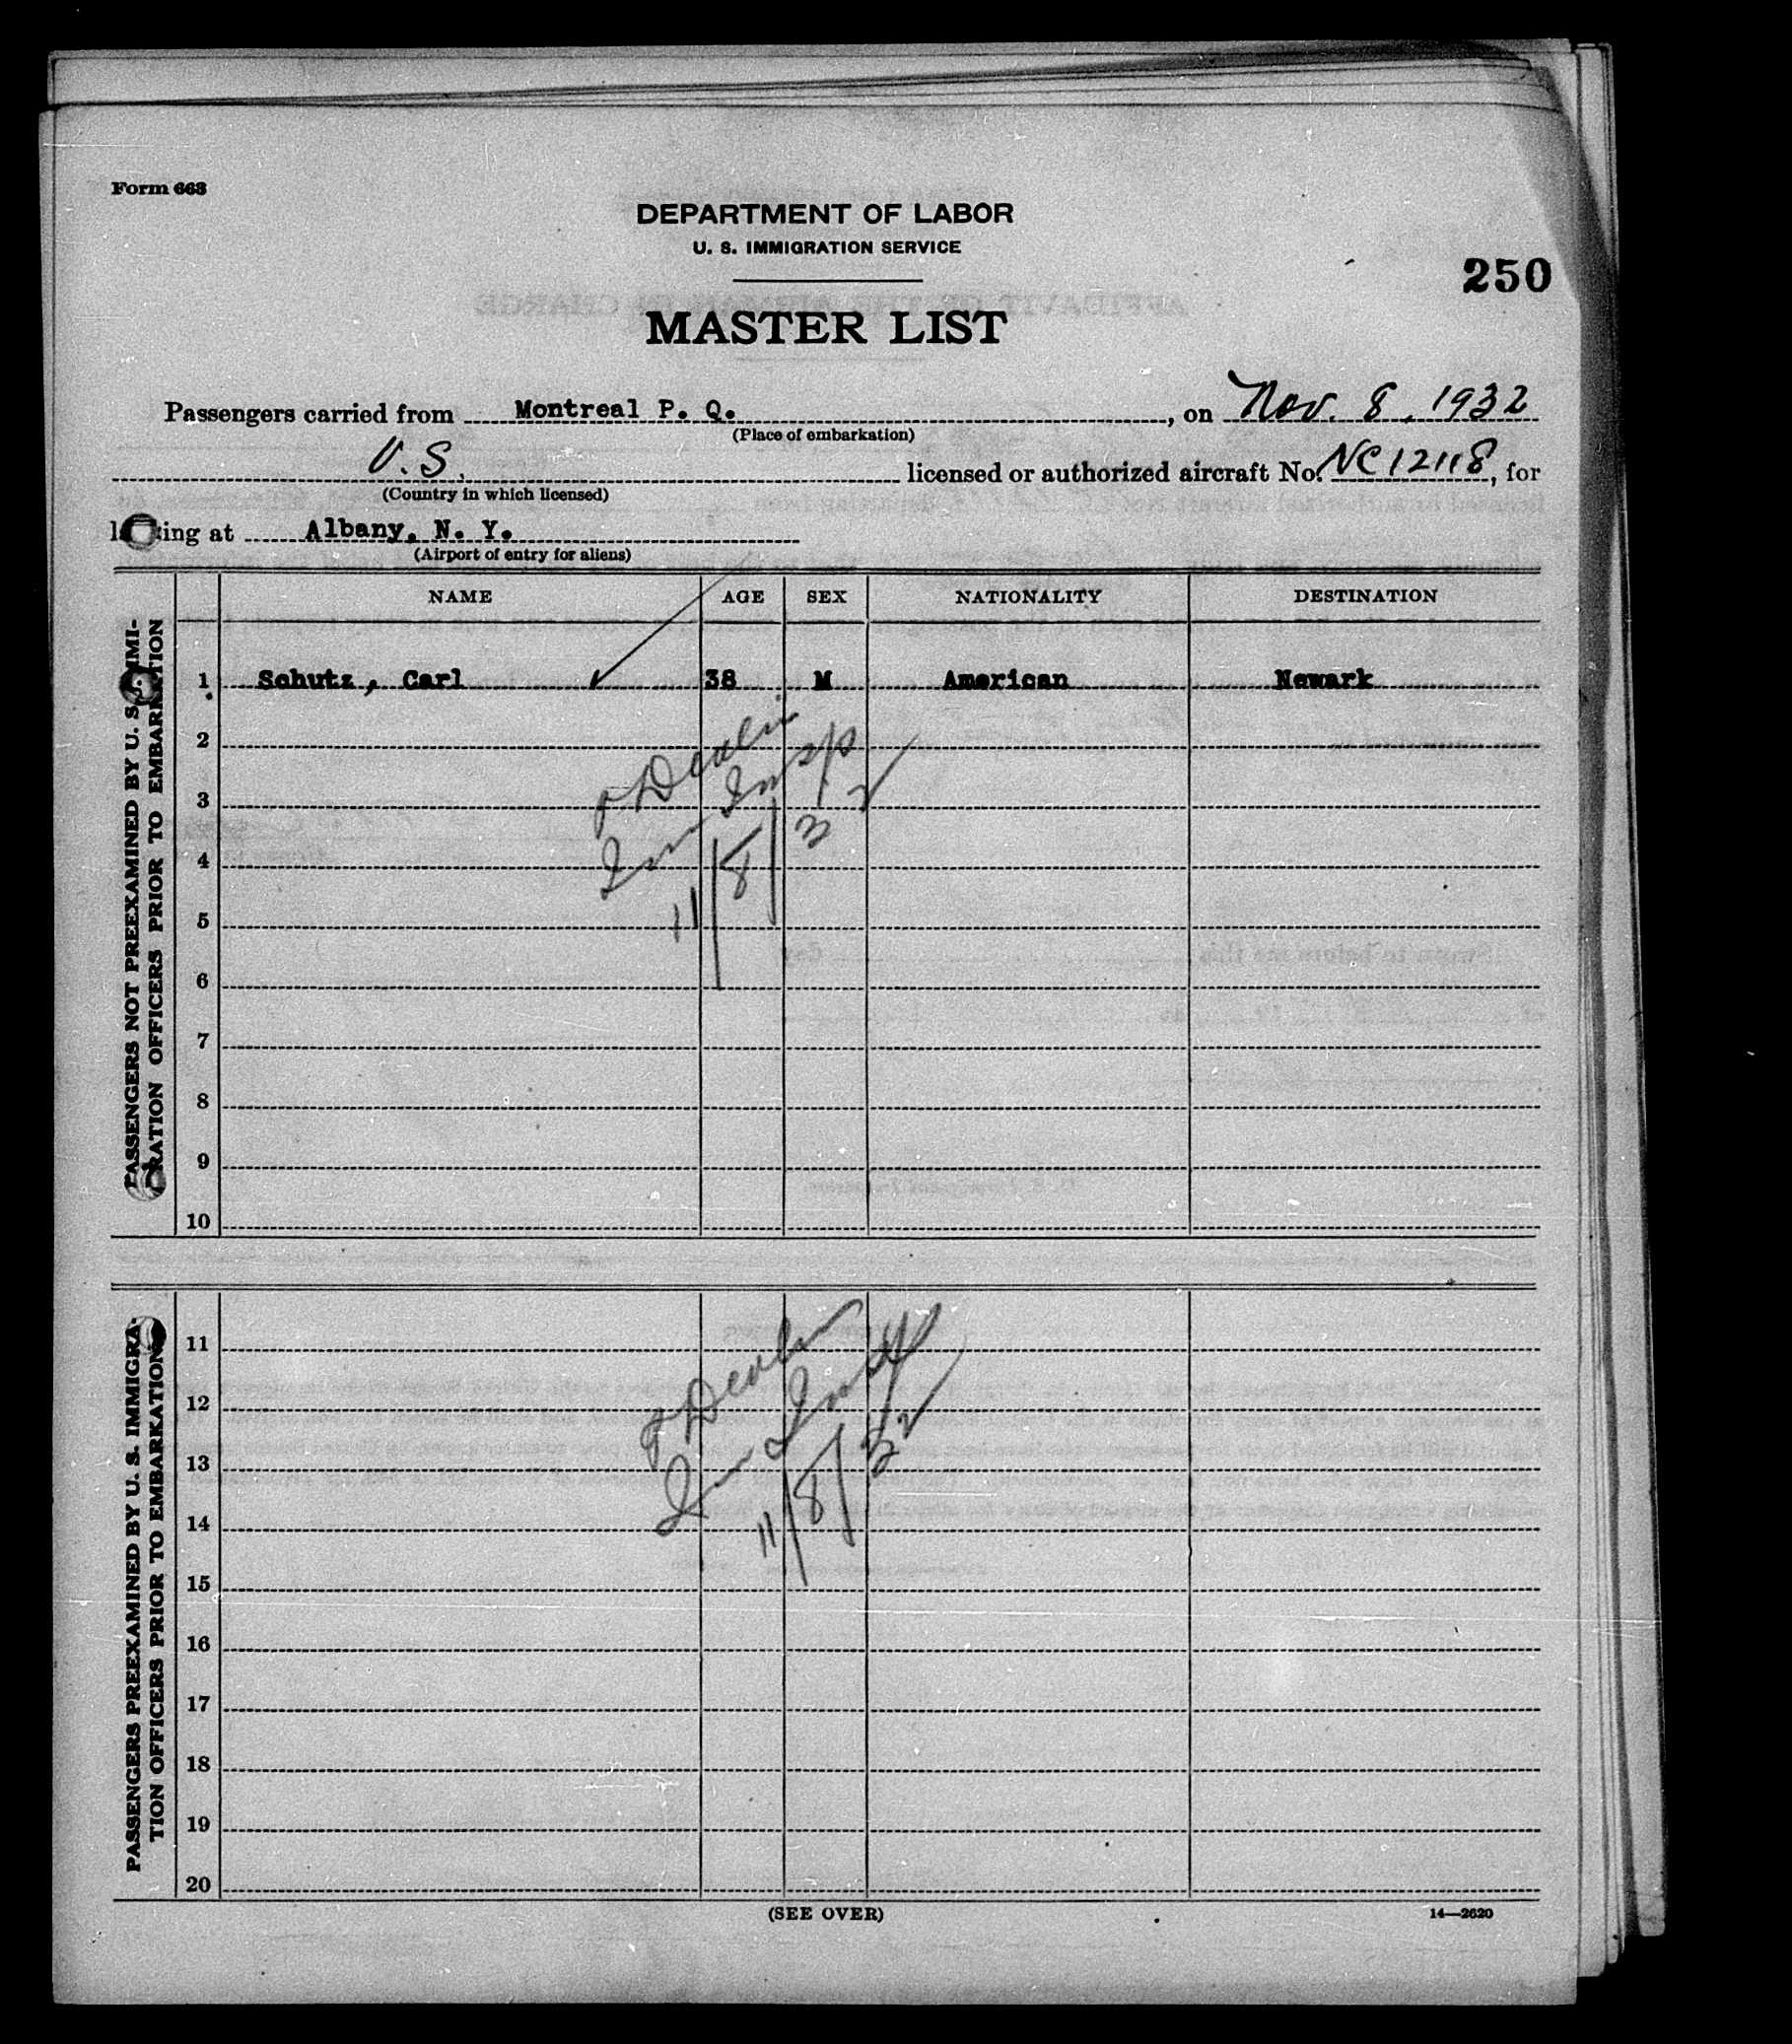 Form 663
DEPARTMENT OF LABOR
U. S. IMMIGRATION SERVICE
250
MASTER LIST
Passengers carried from Montreal P. Q., on Nov. 8, 1932
(Place of embarkation)
U.S. licensed or authorized aircraft No. NC12118, for
(Country in which licensed)
ing at Albany, N. Y.
(Airport of entry for aliens)
NAME AGE SEX NATIONALITY DESTINATION
PASSENGERS NOT PREEXAMINED BY U. S. IMMI-
GRATION OFFICERS PRIOR TO EMBARKATION
1 Schutz, Carl 38 M American Newark
2
3
4
5
6
7
8
9
10
Devlin
Imm Insp
11/8/32
PASSENGERS PREEXAMINED BY U. S. IMMIGRA-
TION OFFICERS PRIOR TO EMBARKATION
11
12
13
14
15
16
17
18
19
20
Devlin
Imm Insp
11/8/32
(SEE OVER)
14—2620